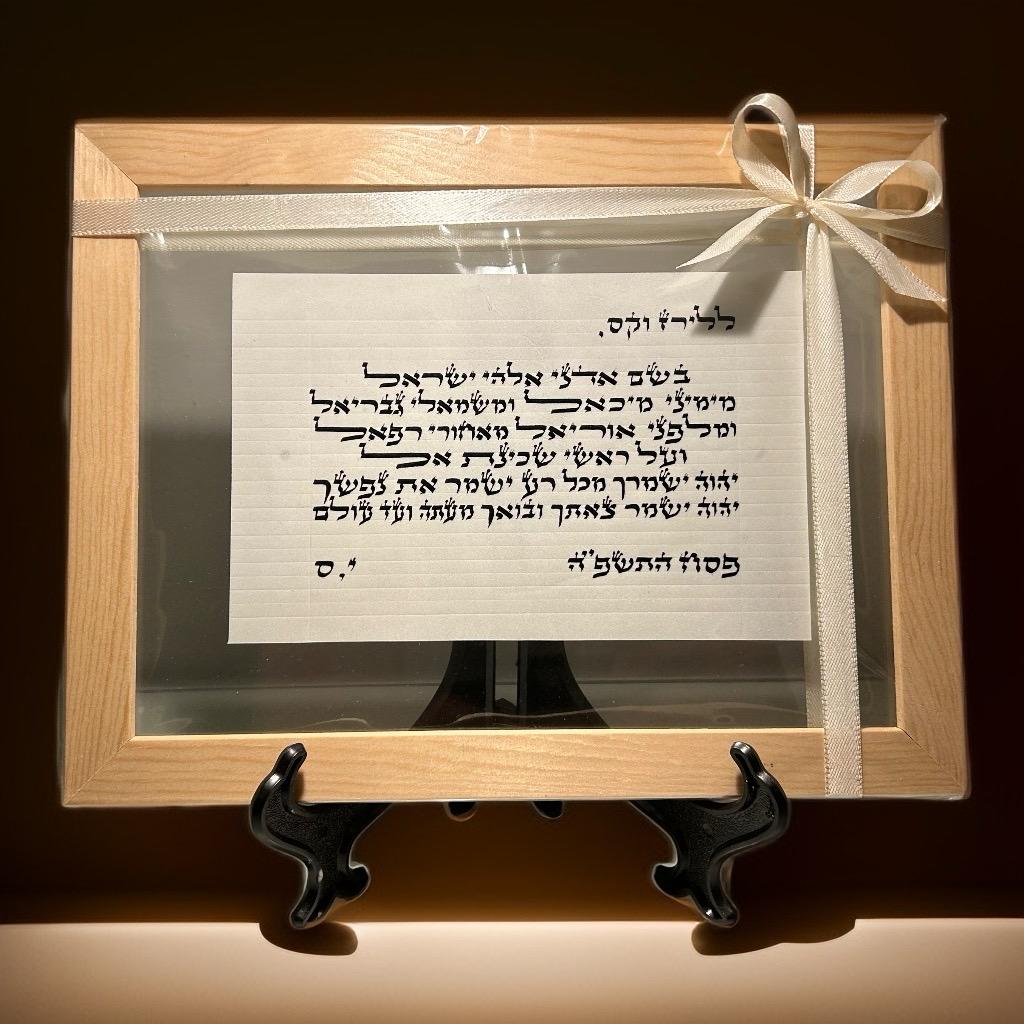 ללירז וקס,
בשם אדני אלהי ישראל
מימיני מיכאל ומשמאלי גבריאל
ומלפני אוריאל מאחורי רפאל
ועל ראשי שכינת אל
יהוה ישמרך מכל רע ישמר את נפשך
יהוה ישמר צאתך ובואך מעתה ועד עולם
פסח התשפ"ה י.ס